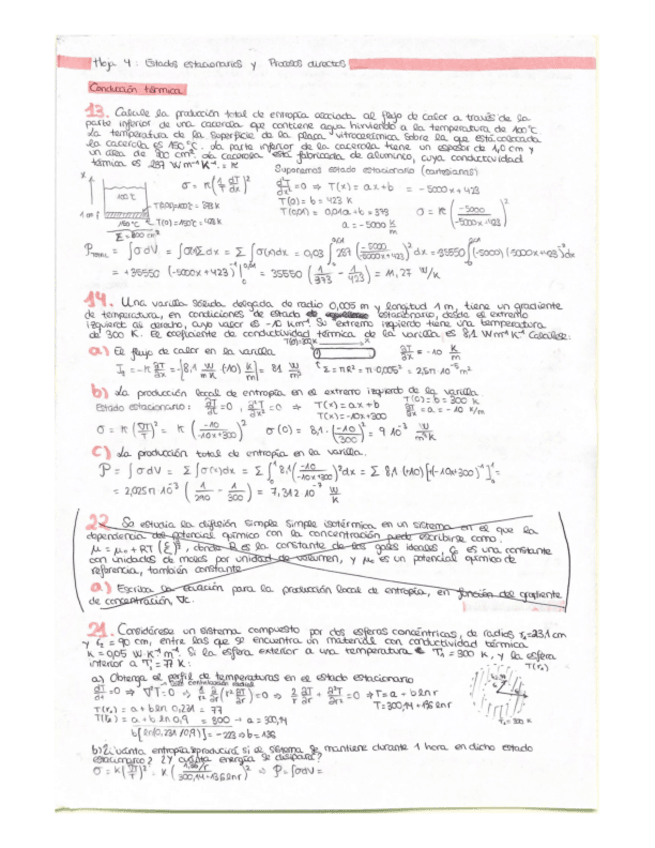 Hoja 4: Estados estacionarios y Procesos directos
Conducción térmica
13. Calcule la producción total de entropía asociada al flujo de calor a través de la
parte inferior de una cacerola que contiene agua hirviendo a la temperatura de 100°C
La temperatura de la superficie de la placa vitrocerámica sobre la que está colocada
la cacerola es 150°C. La parte inferior de la cacerola tiene un espesor de 1,0 cm y
un área de 300 cm². La cacerola está fabricada de aluminio, cuya conductividad
térmica es 237 W m⁻¹ K⁻¹ = κ
Suponemos estado estacionario (cartesianas)
x
100°C
1 cm
150°C
T(0)=150°C = 423K
σ = κ(1/T dT/dx)²
d²T/dx² = 0 ⇒ T(x) = ax+b = -5000x+423
T(0) = b = 423 K
T(0,01) = 0,01a+b = 373
a = -5000 K/m
σ = κ(-5000/(-5000x+423))²
P_TOTAL = ∫σdV = ∫σ(x)Σdx = Σ∫σ(x)dx = 0,03 ∫₀^0,01 237 (-5000/(-5000x+423))² dx = -35550 ∫₀^0,01 (-5000)(-5000x+423)⁻² dx
= +35550 (-5000x+423)⁻¹|₀^0,01 = 35550 (1/373 - 1/423) = 11,27 W/K
14. Una varilla sólida delgada de radio 0,005 m y longitud 1 m, tiene un gradiente
de temperatura, en condiciones de estado estacionario, desde el extremo
izquierdo al derecho, cuyo valor es -10 Km⁻¹. Su extremo izquierdo tiene una temperatura
de 300 K. El coeficiente de conductividad térmica de la varilla es 8,1 Wm⁻¹K⁻¹ Calcúlese:
a) El flujo de calor en la varilla
T(0)=300K
x
∂T/∂x = -10 K/m
= -κ ∂T/∂x = -[8,1 W/mK (-10) K/m] = 81 W/m²
Σ = πR² = π·0,005² = 2,5π 10⁻⁵ m²
b) La producción local de entropía en el extremo izquierdo de la varilla
Estado estacionario: ∂T/∂t = 0, ∂²T/∂x² = 0 ⇒ T(x) = ax+b
T(x) = -10x+300
T(0) = b = 300 K
∂T/∂x = a = -10 K/m
σ = κ(∇T/T)² = κ(-10/(-10x+300))²
σ(0) = 8,1·(-10/300)² = 9·10⁻³ W/m³K
c) La producción total de entropía en la varilla.
P = ∫σdV = Σ∫σ(x)dx = Σ∫₀¹ 8,1(-10/(-10x+300))² dx = Σ 8,1 (+10)[+(-10x+300)⁻¹]₀¹ =
= 2,025π 10⁻³ (1/290 - 1/300) = 7,312·10⁻⁷ W/K
22. Se estudia la difusión simple simple isotérmica en un sistema en el que la
dependencia del potencial químico con la concentración puede escribirse como:
donde R es la constante de los gases ideales, c₀ es una constante
con unidades de moles por unidad de volumen, y μ₀ es un potencial químico de
referencia, también constante
a) Escriba la ecuación para la producción local de entropía, en función del gradiente
de concentración, ∇c.
21. Considérese un sistema compuesto por dos esferas concéntricas, de radios r₁=23,1 cm
y r₂ = 90 cm, entre las que se encuentra un material con conductividad térmica
K = 0,05 W K⁻¹ m⁻¹ Si la esfera exterior a una temperatura Tₑ = 300 K, y la esfera
interior a Tᵢ = 77 K:
a) Obtenga el perfil de temperaturas en el estado estacionario
∂T/∂t = 0 ⇒ ∇²T = 0 ⇒ 1/r² ∂/∂r (r² ∂T/∂r) = 0 ⇒ 2/r ∂T/∂r + ∂²T/∂r² = 0 ⇒ T = a - b ln r
T(r₁) = a + b ln 0,231 = 77
T = 300,14 + 136 ln r
T(r₂) = a + b ln 0,9 = 300 → a = 300,14
b[ln(0,231/0,9)] = -223 ⇒ b = 136
b) ¿Cuánta entropía se producirá si el sistema se mantiene durante 1 hora en dicho estado
estacionario? ¿Y cuánta energía se disipará?
⇒ P = ∫σdV =